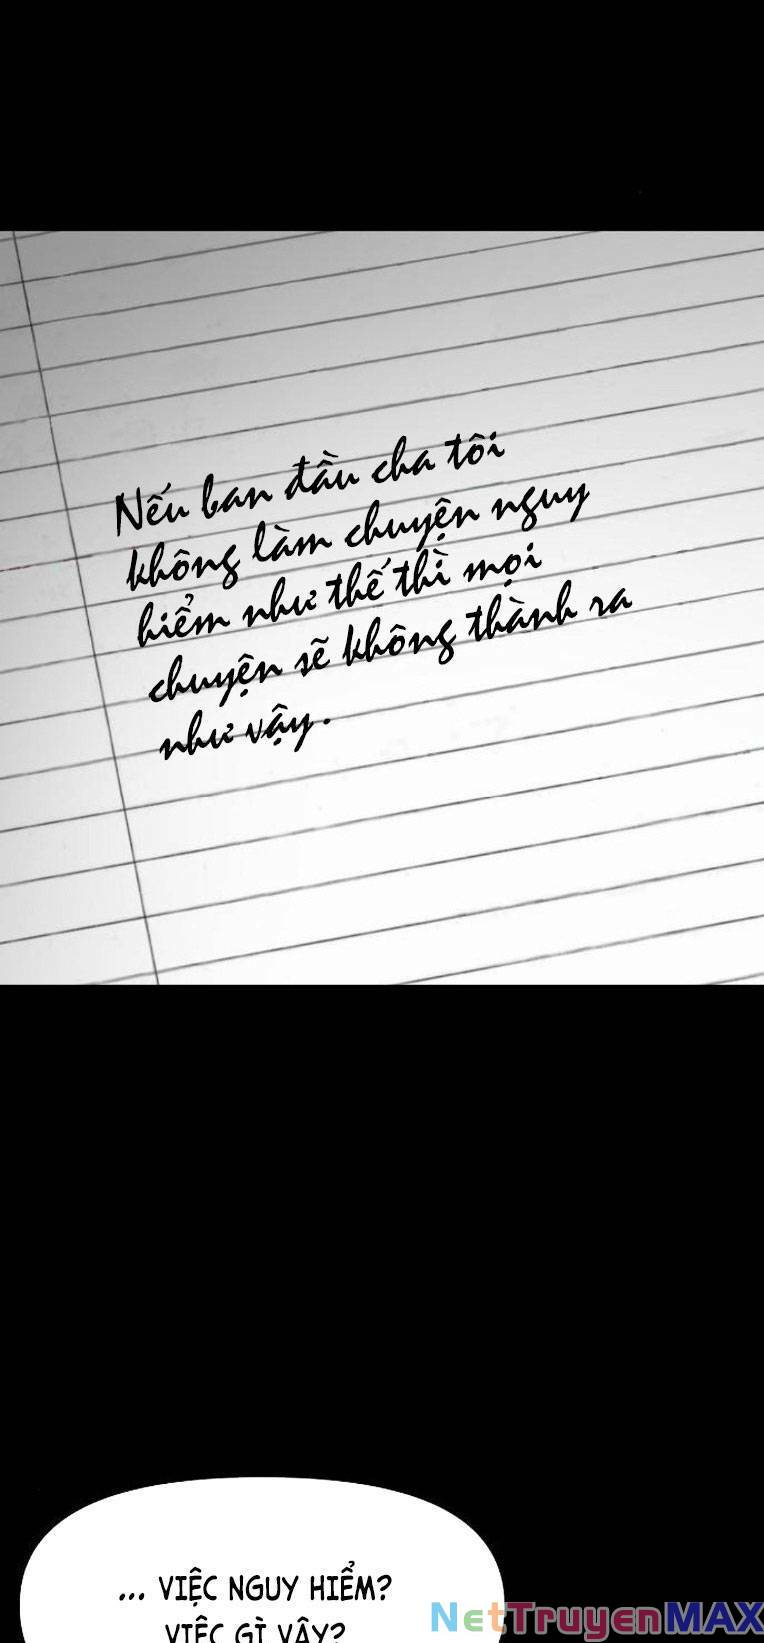 Nếu ban đầu cha tôi
không làm chuyện nguy
hiểm như thế thì mọi
chuyện sẽ không thành ra
như vậy.
... VIỆC NGUY HIỂM?
VIỆC GÌ VẬY?
NetTruyenMAX